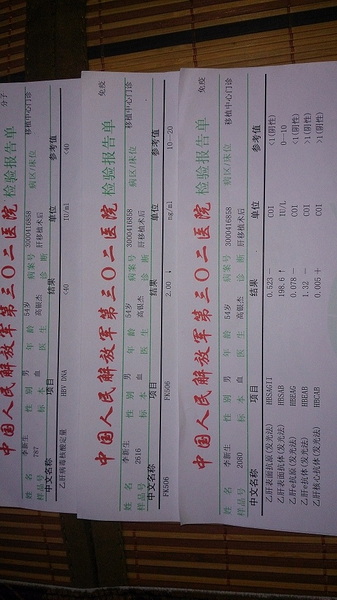 分子
中国人民解放军第三〇二医院
检验报告单
姓名 李新生 性别 男 年龄 54岁 病案号 3000416858 病区/床位 移植中心门诊
样品号 787 标本 血 医生 高银杰 诊断 肝移植术后
中文名称 项目 结果 单位 参考值
乙肝病毒核酸定量 HBV DNA <40 IU/ml <40
免疫
中国人民解放军第三〇二医院
检验报告单
姓名 李新生 性别 男 年龄 54岁 病案号 3000416858 病区/床位 移植中心门诊
样品号 2616 标本 血 医生 高银杰 诊断 肝移植术后
中文名称 项目 结果 单位 参考值
FK506 FK506 2.00 ↓ ng/ml 10—20
免疫
中国人民解放军第三〇二医院
检验报告单
姓名 李新生 性别 男 年龄 54岁 病案号 3000416858 病区/床位 移植中心门诊
样品号 2080 标本 血 医生 高银杰 诊断 肝移植术后
中文名称 项目 结果 单位 参考值
乙肝表面抗原(发光法) HBSAGII 0.523 — COI <1(阴性)
乙肝表面抗体(发光法) HBSAB 198.6 ↑ IU/L 0—10
乙肝e抗原(发光法) HBEAG 0.078 — COI <1(阴性)
乙肝e抗体(发光法) HBEAB 1.32 — COI >1(阴性)
乙肝核心抗体(发光法) HBCAB 0.005 + COI >1(阴性)